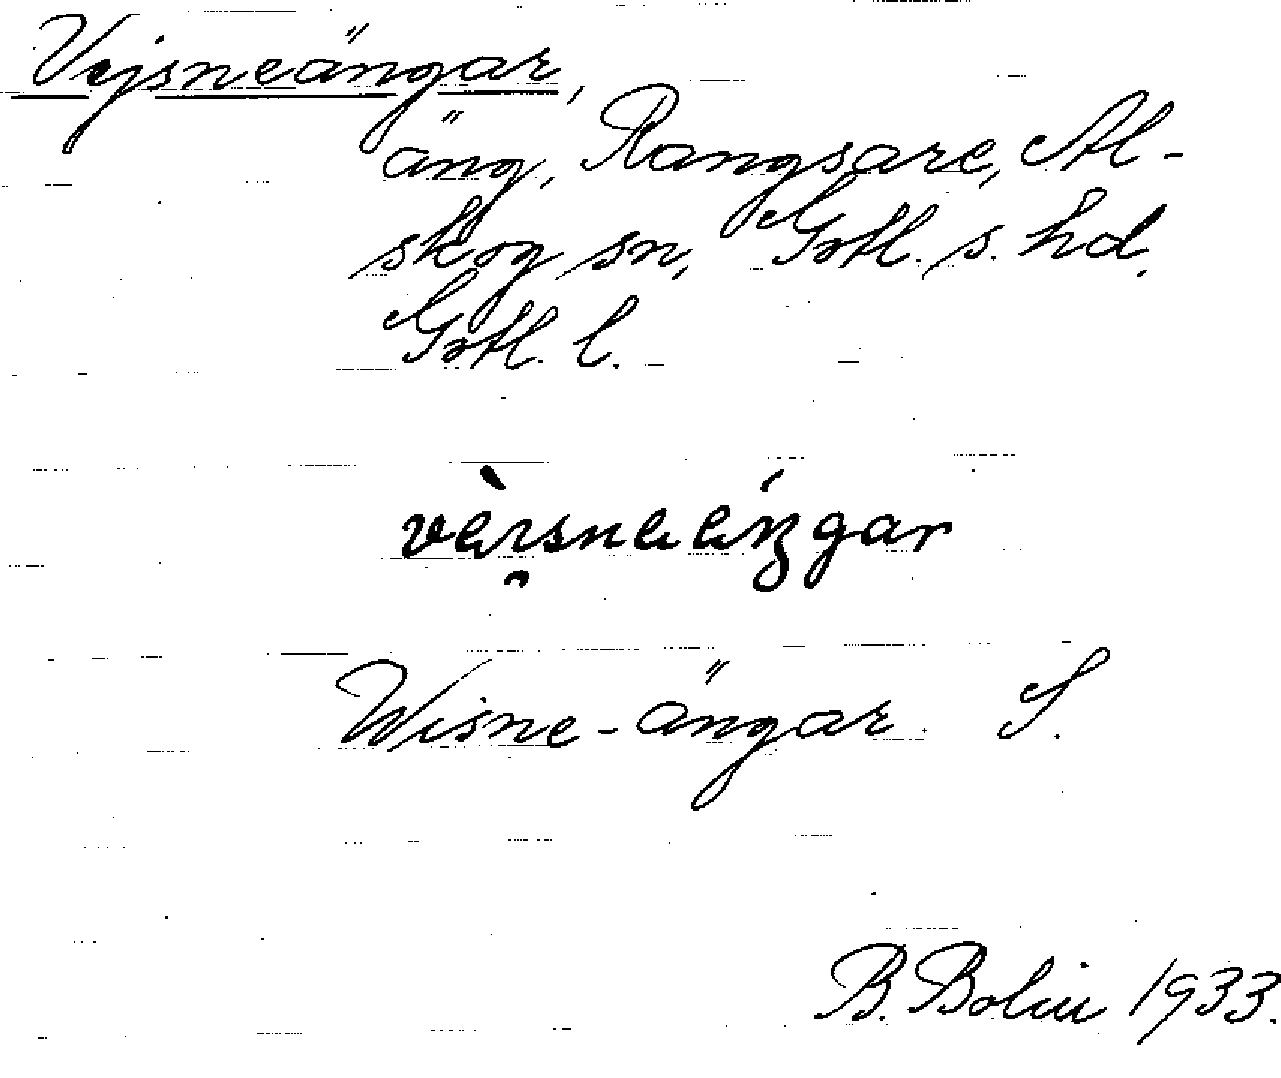 Vejsneängar,
äng, Rangsare, Al-
skog sn, Gotl. s. hd.
Gotl. l.
Wisne-ängar. S.
B. Bolin 1933.